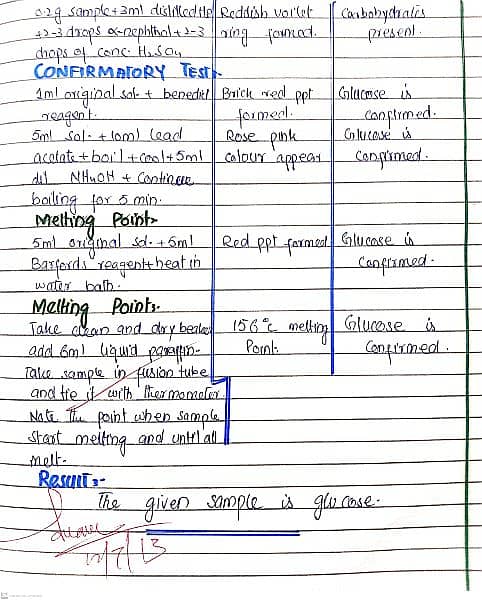 0.2g sample+3ml distilled H2O Reddish voilet Carbohydrates
+2-3 drops α-nephthol+2-3 ring formed. present.
drops of conc. H2SO4
CONFIRMATORY Test:-
1ml original sol. + benedict Brick red ppt Glucose is
reagent. formed. confirmed.
5ml sol. + 10ml lead Rose pink Glucose is
acetate + boil + cool + 5ml colour appear Confirmed.
dil NH4OH + Continue
boiling for 5 min.
Melting Point:-
5ml original sol. + 5ml Red ppt formed Glucose is
Barfords reagent+heat in Confirmed.
water bath.
Melting Point:-
Take clean and dry beaker 156°c melting Glucose is
add 6ml liquid paraffin. Point. Confirmed.
Take sample in fusion tube
and tie it with thermometer
Note the point when sample
start melting and until all
melt.
Result:-
The given sample is glucose.
12/7/13